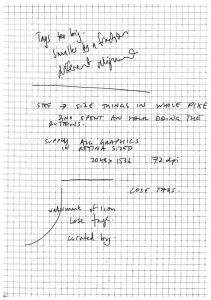 Tags too big.
smaller by a fraction
different alignment
STEP → SIZE THINGS IN WHOLE PIXE
AND SPENT AN HOUR DOING THE
BUTTONS.
SUPPLY ALL GRAPHICS
IN RETINA SIZED
2048 x 1536 72 dpi
LOSE TAGS.
alignment of icon
Lose tags.
curated by.